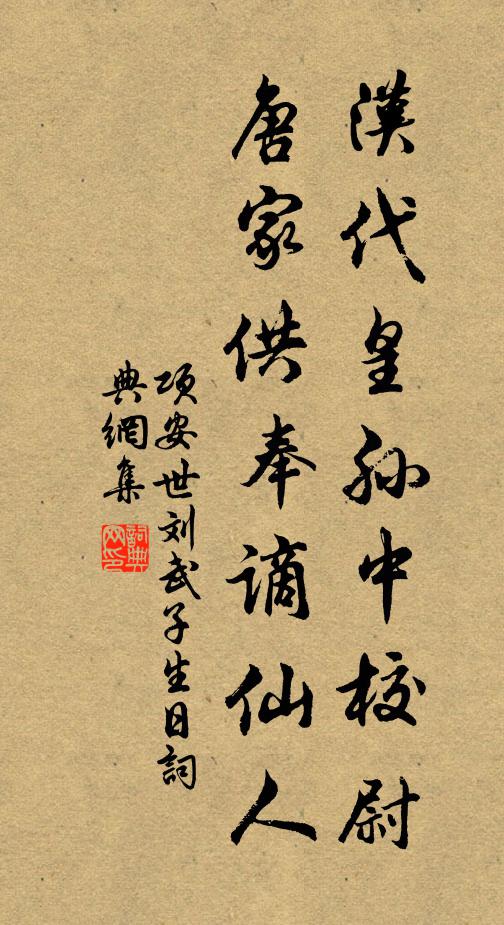 漢代皇孙中校尉
唐家供奉謫仙人
项安世刘武子生日詞
典網集
詞典
网印